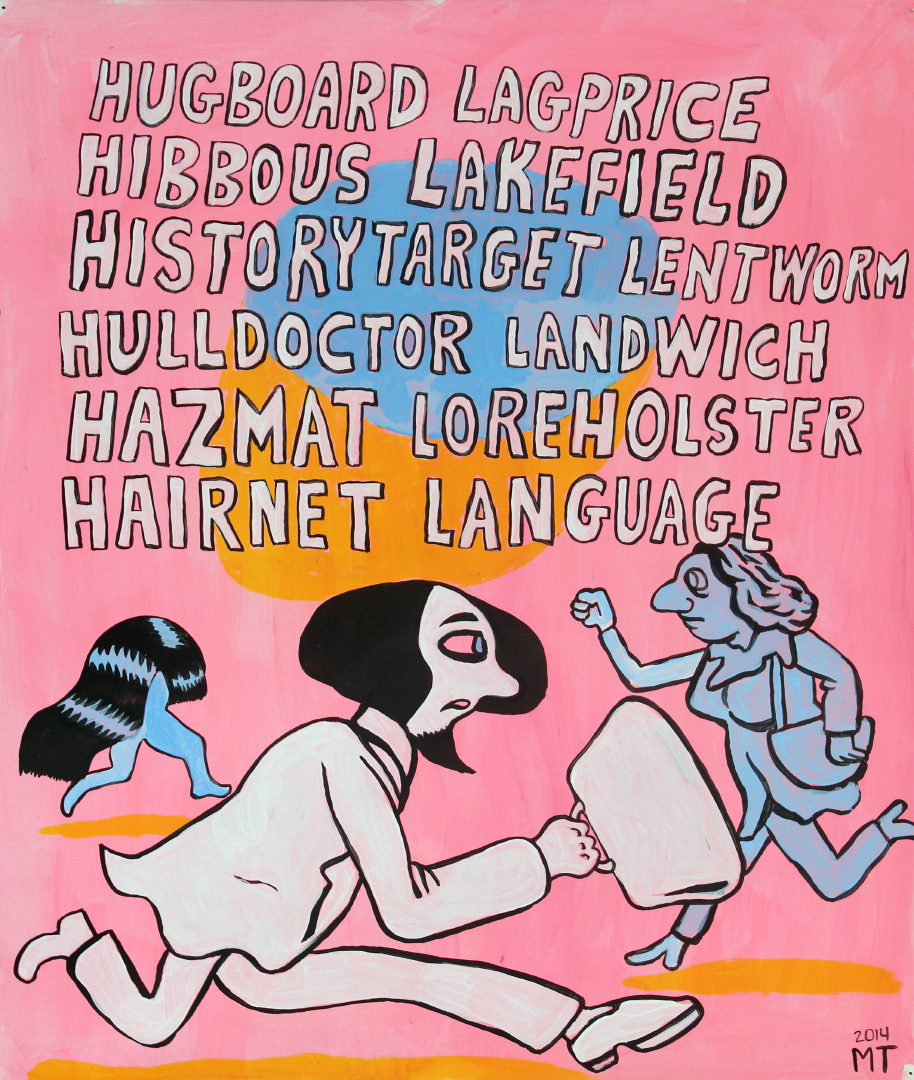 HUGBOARD LAGPRICE
HIBBOUS LAKEFIELD
HISTORYTARGET LENTWORM
HULLDOCTOR LANDWICH
HAZMAT LOREHOLSTER
HAIRNET LANGUAGE
2014
MT